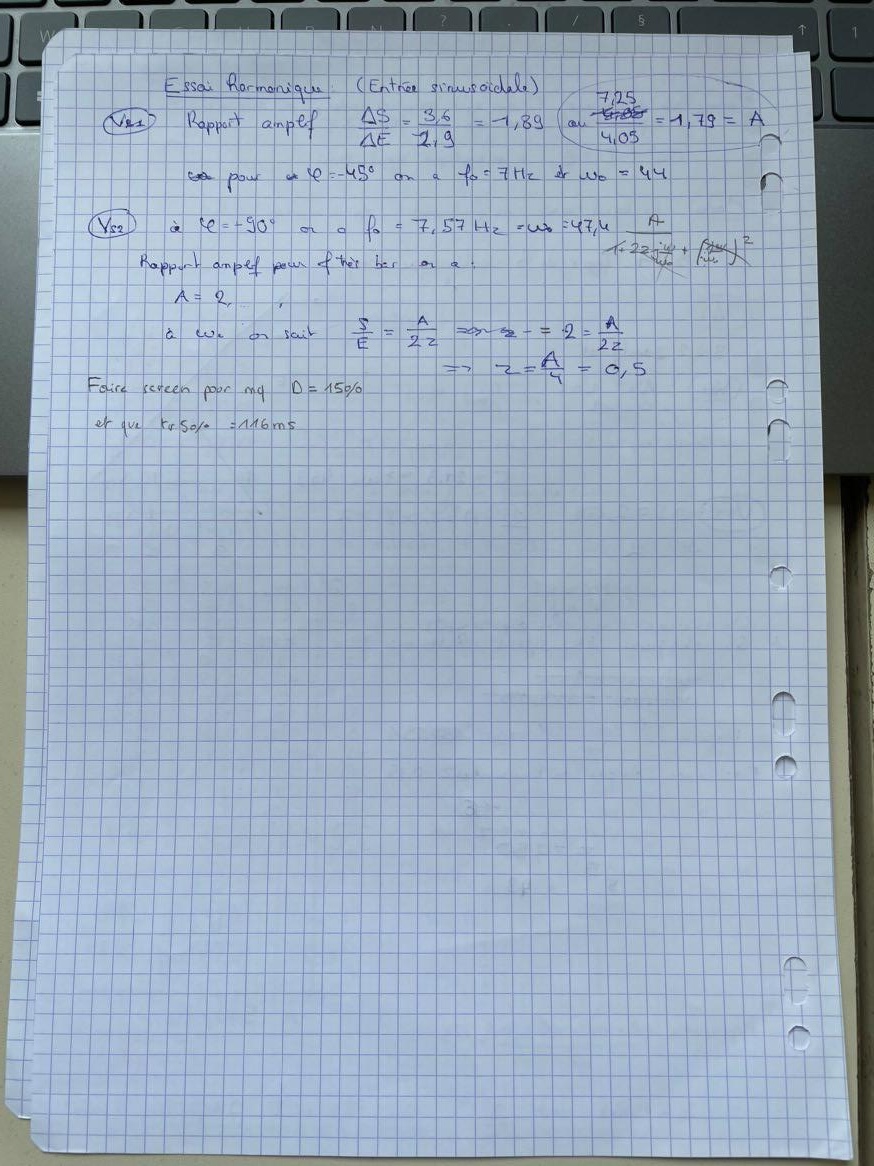 Essai harmonique. (Entrée sinusoïdale)
Vs1 Rapport amplef ΔS/ΔE = 3,6/1,9 = 1,89 ou 7,25/4,05 = 1,79 = A
pour φ = -45° on a f0 = 7 Hz et ω0 = 44
Vs2 à φ = -90° on a f0 = 7,57 Hz = ω0 = 47,4 A/(1+2z jω/ω0 + (jω/ω0)²)
Rapport amplef pour f très bas on a :
A = 2,
à ω on sait S/E = A/2z = 2 = A/2z
=> z = A/4 = 0,5
Faire screen pour mq D = 15%
et que tr 5% = 116 ms